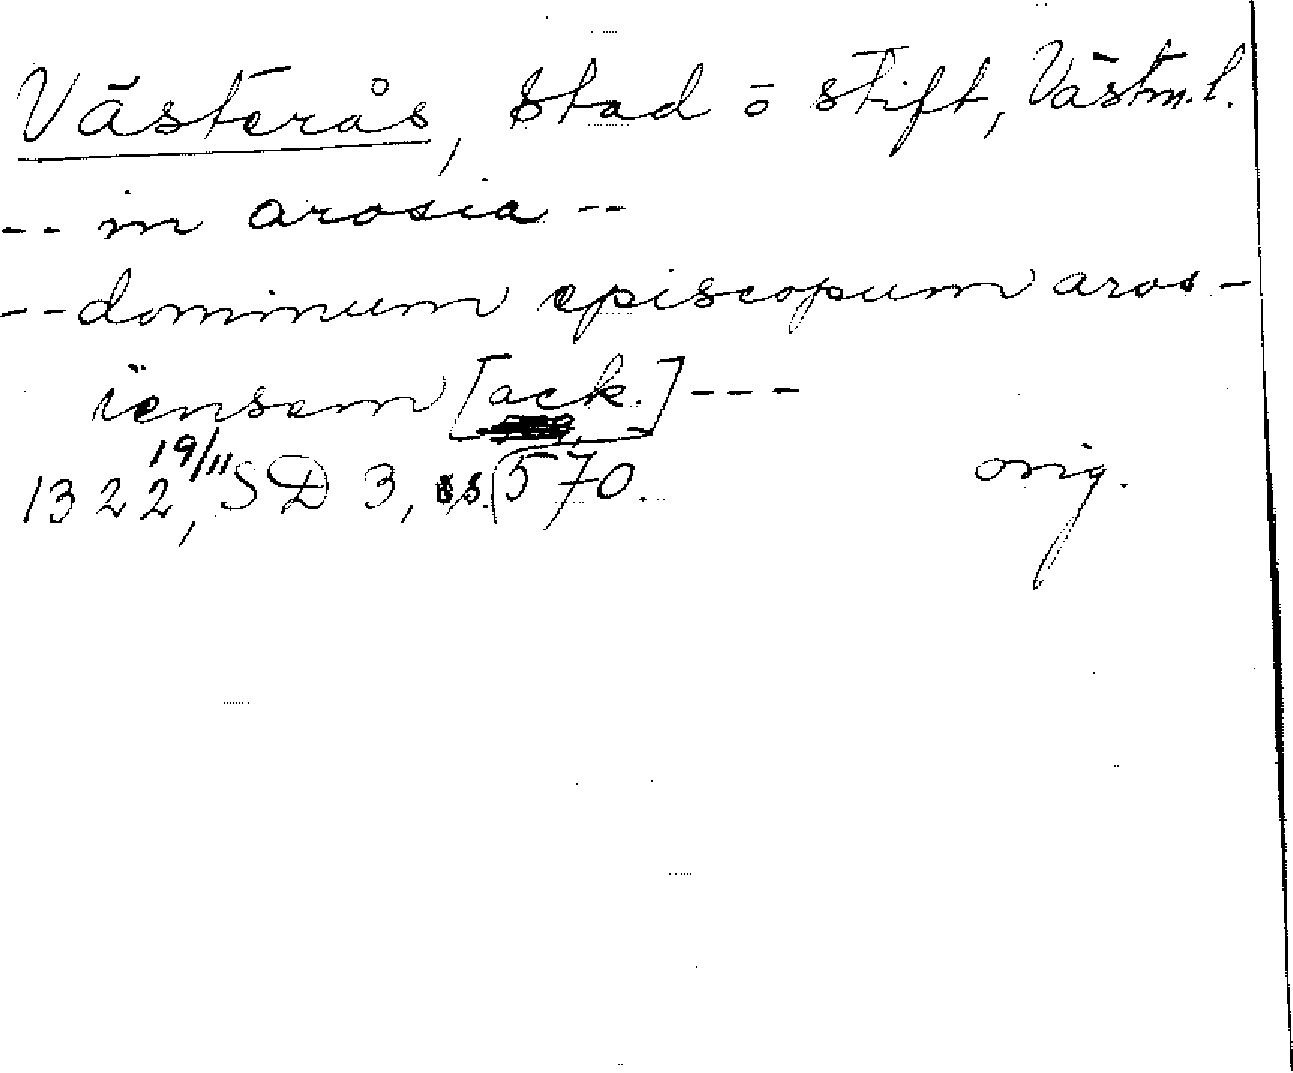 Västerås, stad o stift, Västm.l.
-- in arosia --
-- dominum episcopum aros-
iensem [ack.] ---
1322 19/11, SD 3, s. 570. orig.